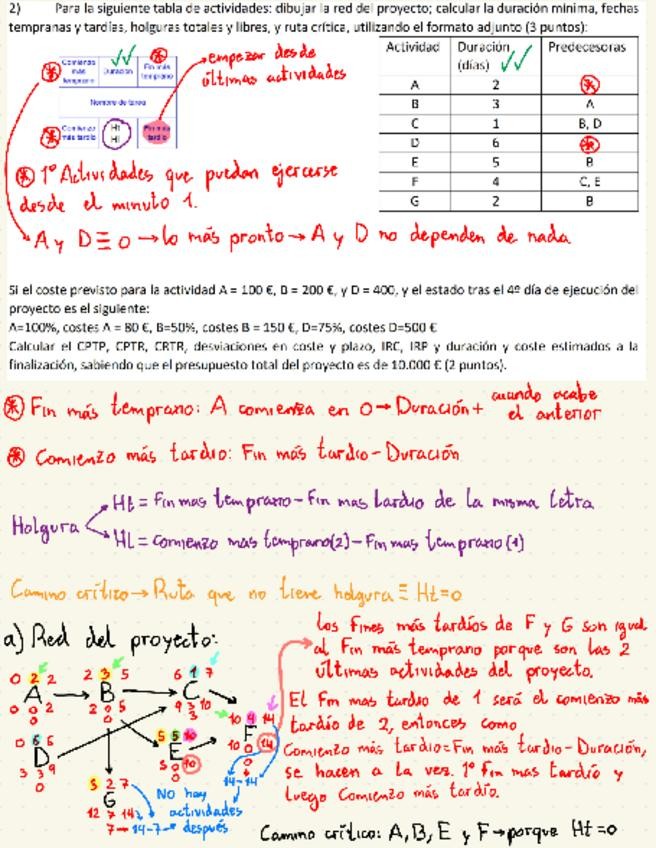 2) Para la siguiente tabla de actividades: dibujar la red del proyecto; calcular la duración mínima, fechas
tempranas y tardías, holguras totales y libres, y ruta crítica, utilizando el formato adjunto (3 puntos):
Comienzo más temprano
Duración
Fin más temprano
Nombre de tarea
Comienzo más tardío
Ht
Hl
Fin más tardío
empezar desde
últimas actividades
Actividad Duración (días) Predecesoras
A 2
B 3 A
C 1 B, D
D 6
E 5 B
F 4 C, E
G 2 B
1º Actividades que puedan ejercerse
desde el minuto 1.
A y D ≡ 0 → lo más pronto → A y D no dependen de nada
Si el coste previsto para la actividad A = 100 €, B = 200 €, y D = 400, y el estado tras el 4º día de ejecución del
proyecto es el siguiente:
A=100%, costes A = 80 €, B=50%, costes B = 150 €, D=75%, costes D=500 €
Calcular el CPTP, CPTR, CRTR, desviaciones en coste y plazo, IRC, IRP y duración y coste estimados a la
finalización, sabiendo que el presupuesto total del proyecto es de 10.000 € (2 puntos).
Fin más temprano: A comienza en 0 → Duración + cuando acabe
el anterior
Comienzo más tardío: Fin más tardío - Duración
Holgura
Ht = Fin mas temprano - Fin mas tardio de la misma letra
HL = comienzo mas temprano(2) - Fin mas temprano (1)
Camino crítico → Ruta que no tiene holgura ≡ Ht=0
a) Red del proyecto:
0 2 2
A
0 0 2
0
2 3 5
B
2 0 5
0
6 1 7
C
9 3 10
3
0 6 6
D
3 3 9
0
5 5 10
E
5 0 10
0
10 4 14
F
10 0 14
0
14-14
5 2 7
G
12 7 14
7 → 14-7
No hay
actividades
después
Los Fines más tardíos de F y G son igual
al Fin más temprano porque son las 2
últimas actividades del proyecto.
El Fin mas tardio de 1 será el comienzo más
tardío de 2, entonces como
Comienzo más tardío=Fin más tardío-Duración,
se hacen a la vez. 1º Fin mas tardío y
luego Comienzo más tardío.
Camino crítico: A, B, E y F → porque Ht=0